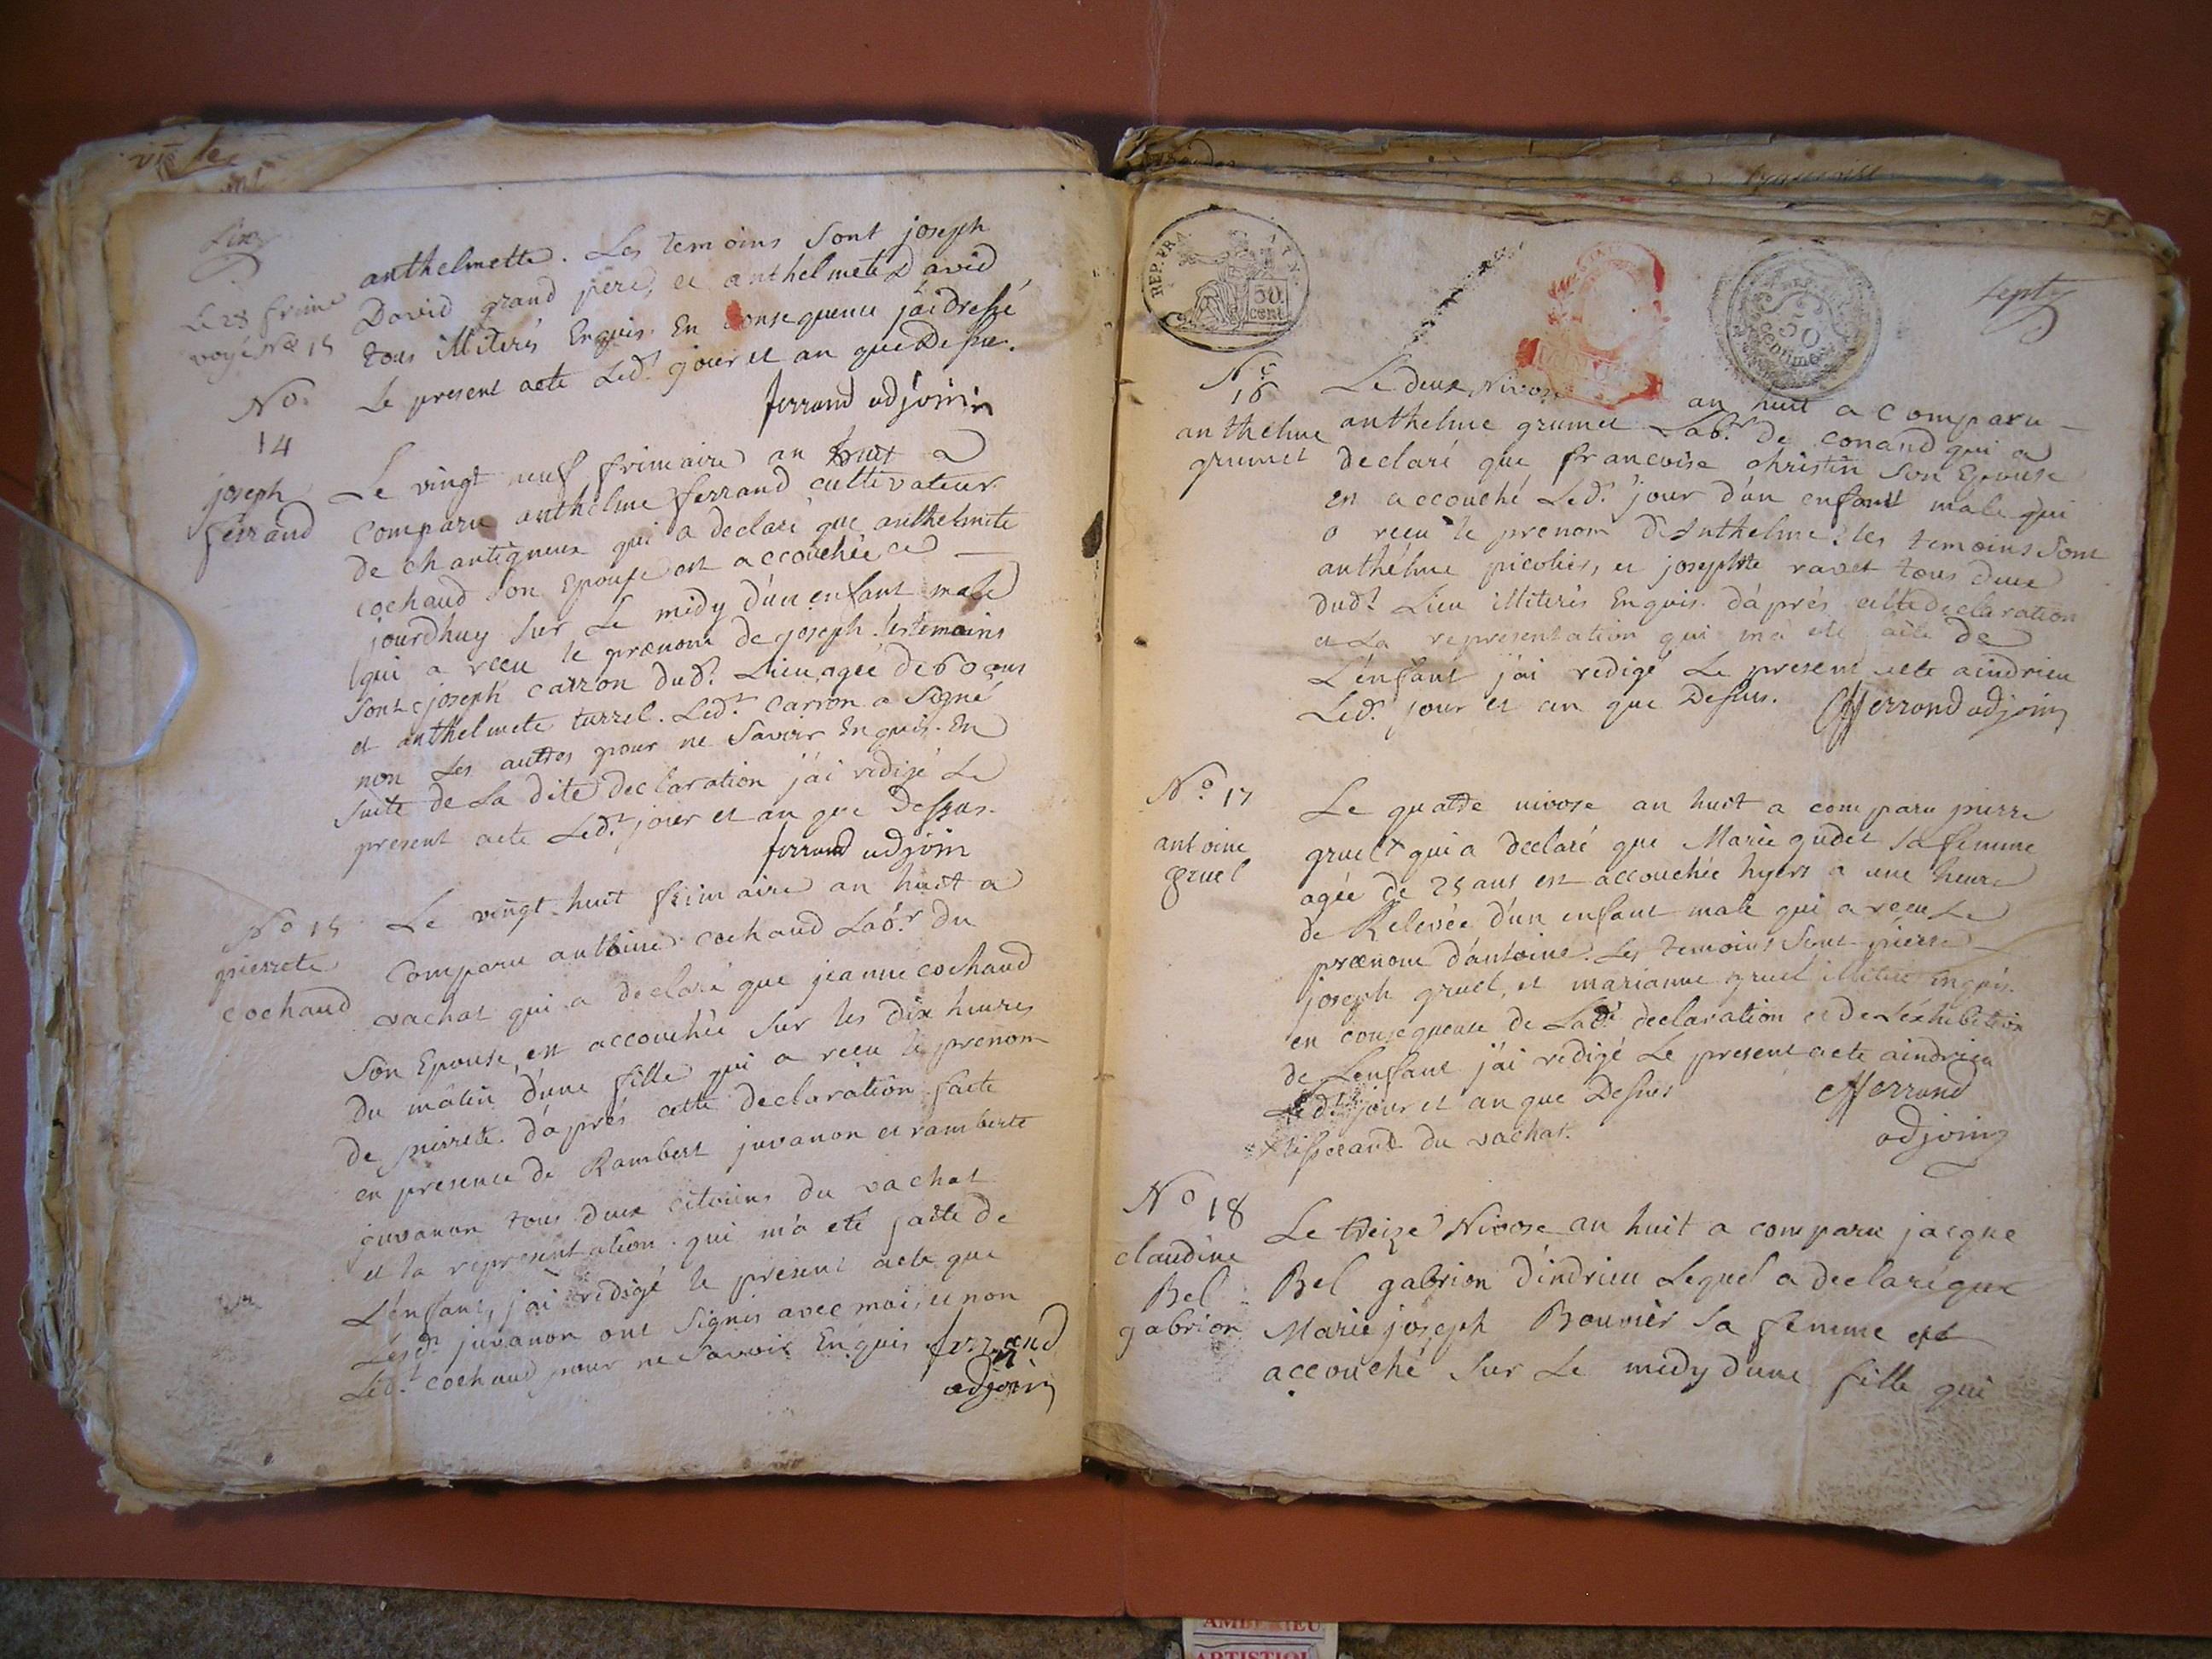 anthelmette. Les temoins sont joseph
David grand pere, et anthelmete David
Le 28 frim.e
voyé No 15
tous illiterés Enquis. En consequence j'ai dressé
le present acte Led.t jour et an que Dessus.
ferrand adjoin
No.
14
joseph
ferrand
Le vingt neuf frimaire an huit a
comparu anthelme ferrand cultivateur
de chantigneux qui a declaré que anthelmete
cochaud Son Epouse est accouchée ce
jourdhuy sur Le midy d'un enfant male
qui a recu le prænom de joseph. les temoins
sont joseph carron dud.t Lieu agée de 60 ans
et anthelmete turrel. Led.t carron a signé
non Les autres pour ne Savoir Enquis. En
suite de La dite declaration j'ai redigé Le
present acte Led.t jour et an que Dessus.
ferrand adjoin
No 15
pierrete
cochaud
Le vingt-huit frimaire an huit a
comparu antoine cochaud Lab.r du
vachat qui a declaré que jeanne cochaud
Son Epouse est accouchée sur les dix heures
du matin d'une fille qui a recu le prenom
de pierrete. d'aprés cette declaration faite
en presence de Rambert juvanon et ramberte
juvanon tous deux citoiens du vachat
et la representation qui m'a eté faite de
L'énfant, j'ai redigé le present acte que
Lesd. juvanon ont signés avec moi, et non
Led.t cochaud pour ne savoir Enquis ferrand
adjoin
REP. FRA.
50.
cent.
50
centimes
septz
No
16
anthelme
grumet
Le deux Nivose an huit a comparu
anthelme grumet Lab.r de conand qui a
declaré que francoise christin son Epouse
est accouché Led.t jour d'un enfant male qui
a recu le prenom D'Anthelme. les temoins sont
anthelme picolier, et josephte ravet tous deux
dud.t Lieu illiterés Enquis. d'aprés cette declaration
et La representation qui m'a eté faite de
L'énfant j'ai redigé Le present acte aindrieu
Led.t jour et an que Dessus. Cfferrand adjoin
No 17
antoine
gruel
Le quatre nivose an huit a comparu pierre
gruel + qui a declaré que Marie gudet sa femme
agée de 25 ans est accouchée hyers a une heure
de Relevée d'un enfant male qui a recu Le
prænom d'antoine. Les temoins sont pierre
joseph gruel, et marianne gruel illiteré Enquis.
en consequence de Lad.e declaration et de L'exhibition
de L'enfant j'ai redigé Le present acte aindrieu
Led.t jour et an que Dessus Cfferrand
+ tisserant du vachat. adjoing
No 18
claudine
Bel
gabrion
Le treize Nivose an huit a comparu jacque
Bel gabrion d'indrieu Lequel a declaré que
Marie joseph Bouvier sa femme est
accouché sur Le midy d'une fille qui